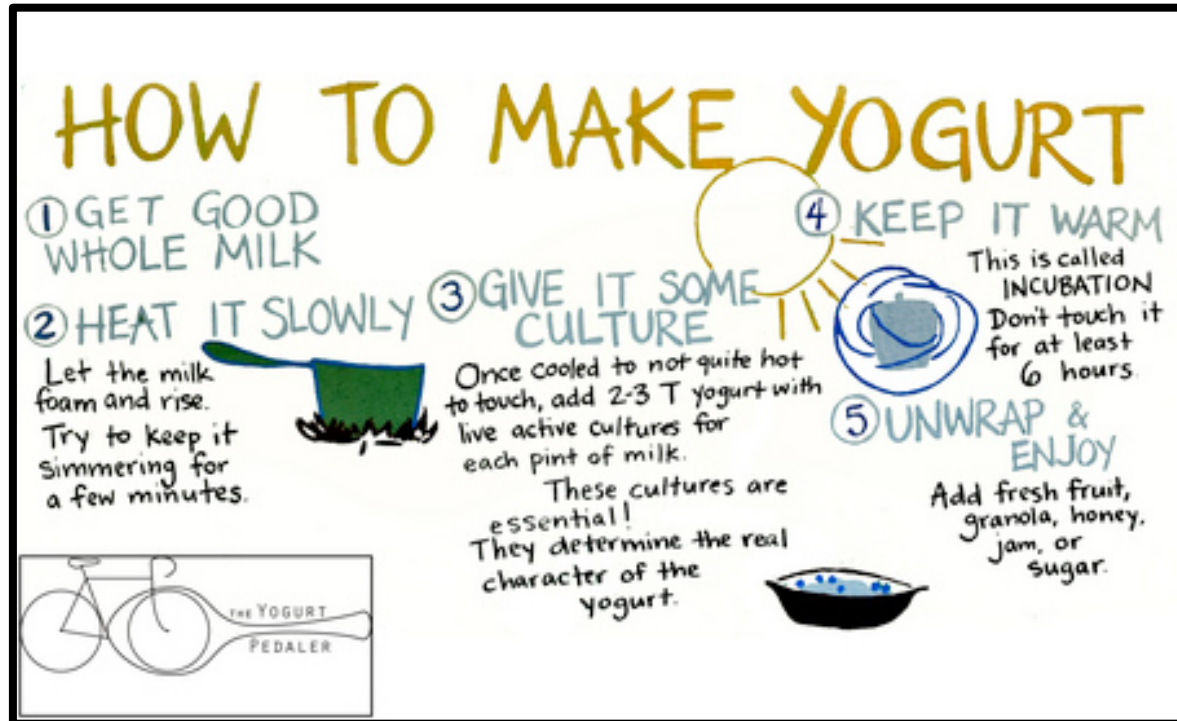 HOW TO MAKE YOGURT
1 GET GOOD
WHOLE MILK
2 HEAT IT SLOWLY
Let the milk
foam and rise.
Try to keep it
simmering for
a few minutes.
3 GIVE IT SOME
CULTURE
Once cooled to not quite hot
to touch, add 2-3 T yogurt with
live active cultures for
each pint of milk.
These cultures are
essential!
They determine the real
character of the
yogurt.
4 KEEP IT WARM
This is called
INCUBATION
Don't touch it
for at least
6 hours.
5 UNWRAP &
ENJOY
Add fresh fruit,
granola, honey,
jam, or
sugar.
THE YOGURT
PEDALER